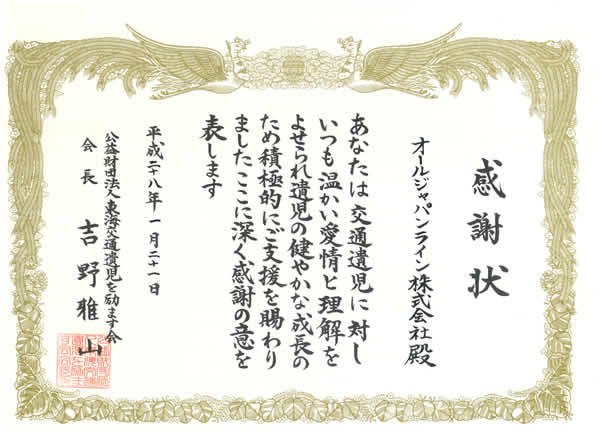 感謝状
オールジャパンライン株式会社殿
あなたは交通遺児に対し
いつも温かい愛情と理解を
よせられ遺児の健やかな成長の
ため積極的にご支援を賜わり
ましたここに深く感謝の意を
表します
平成二十八年一月二十一日
公益財団法人東海交通遺児を励ます会
会長 吉野雅山